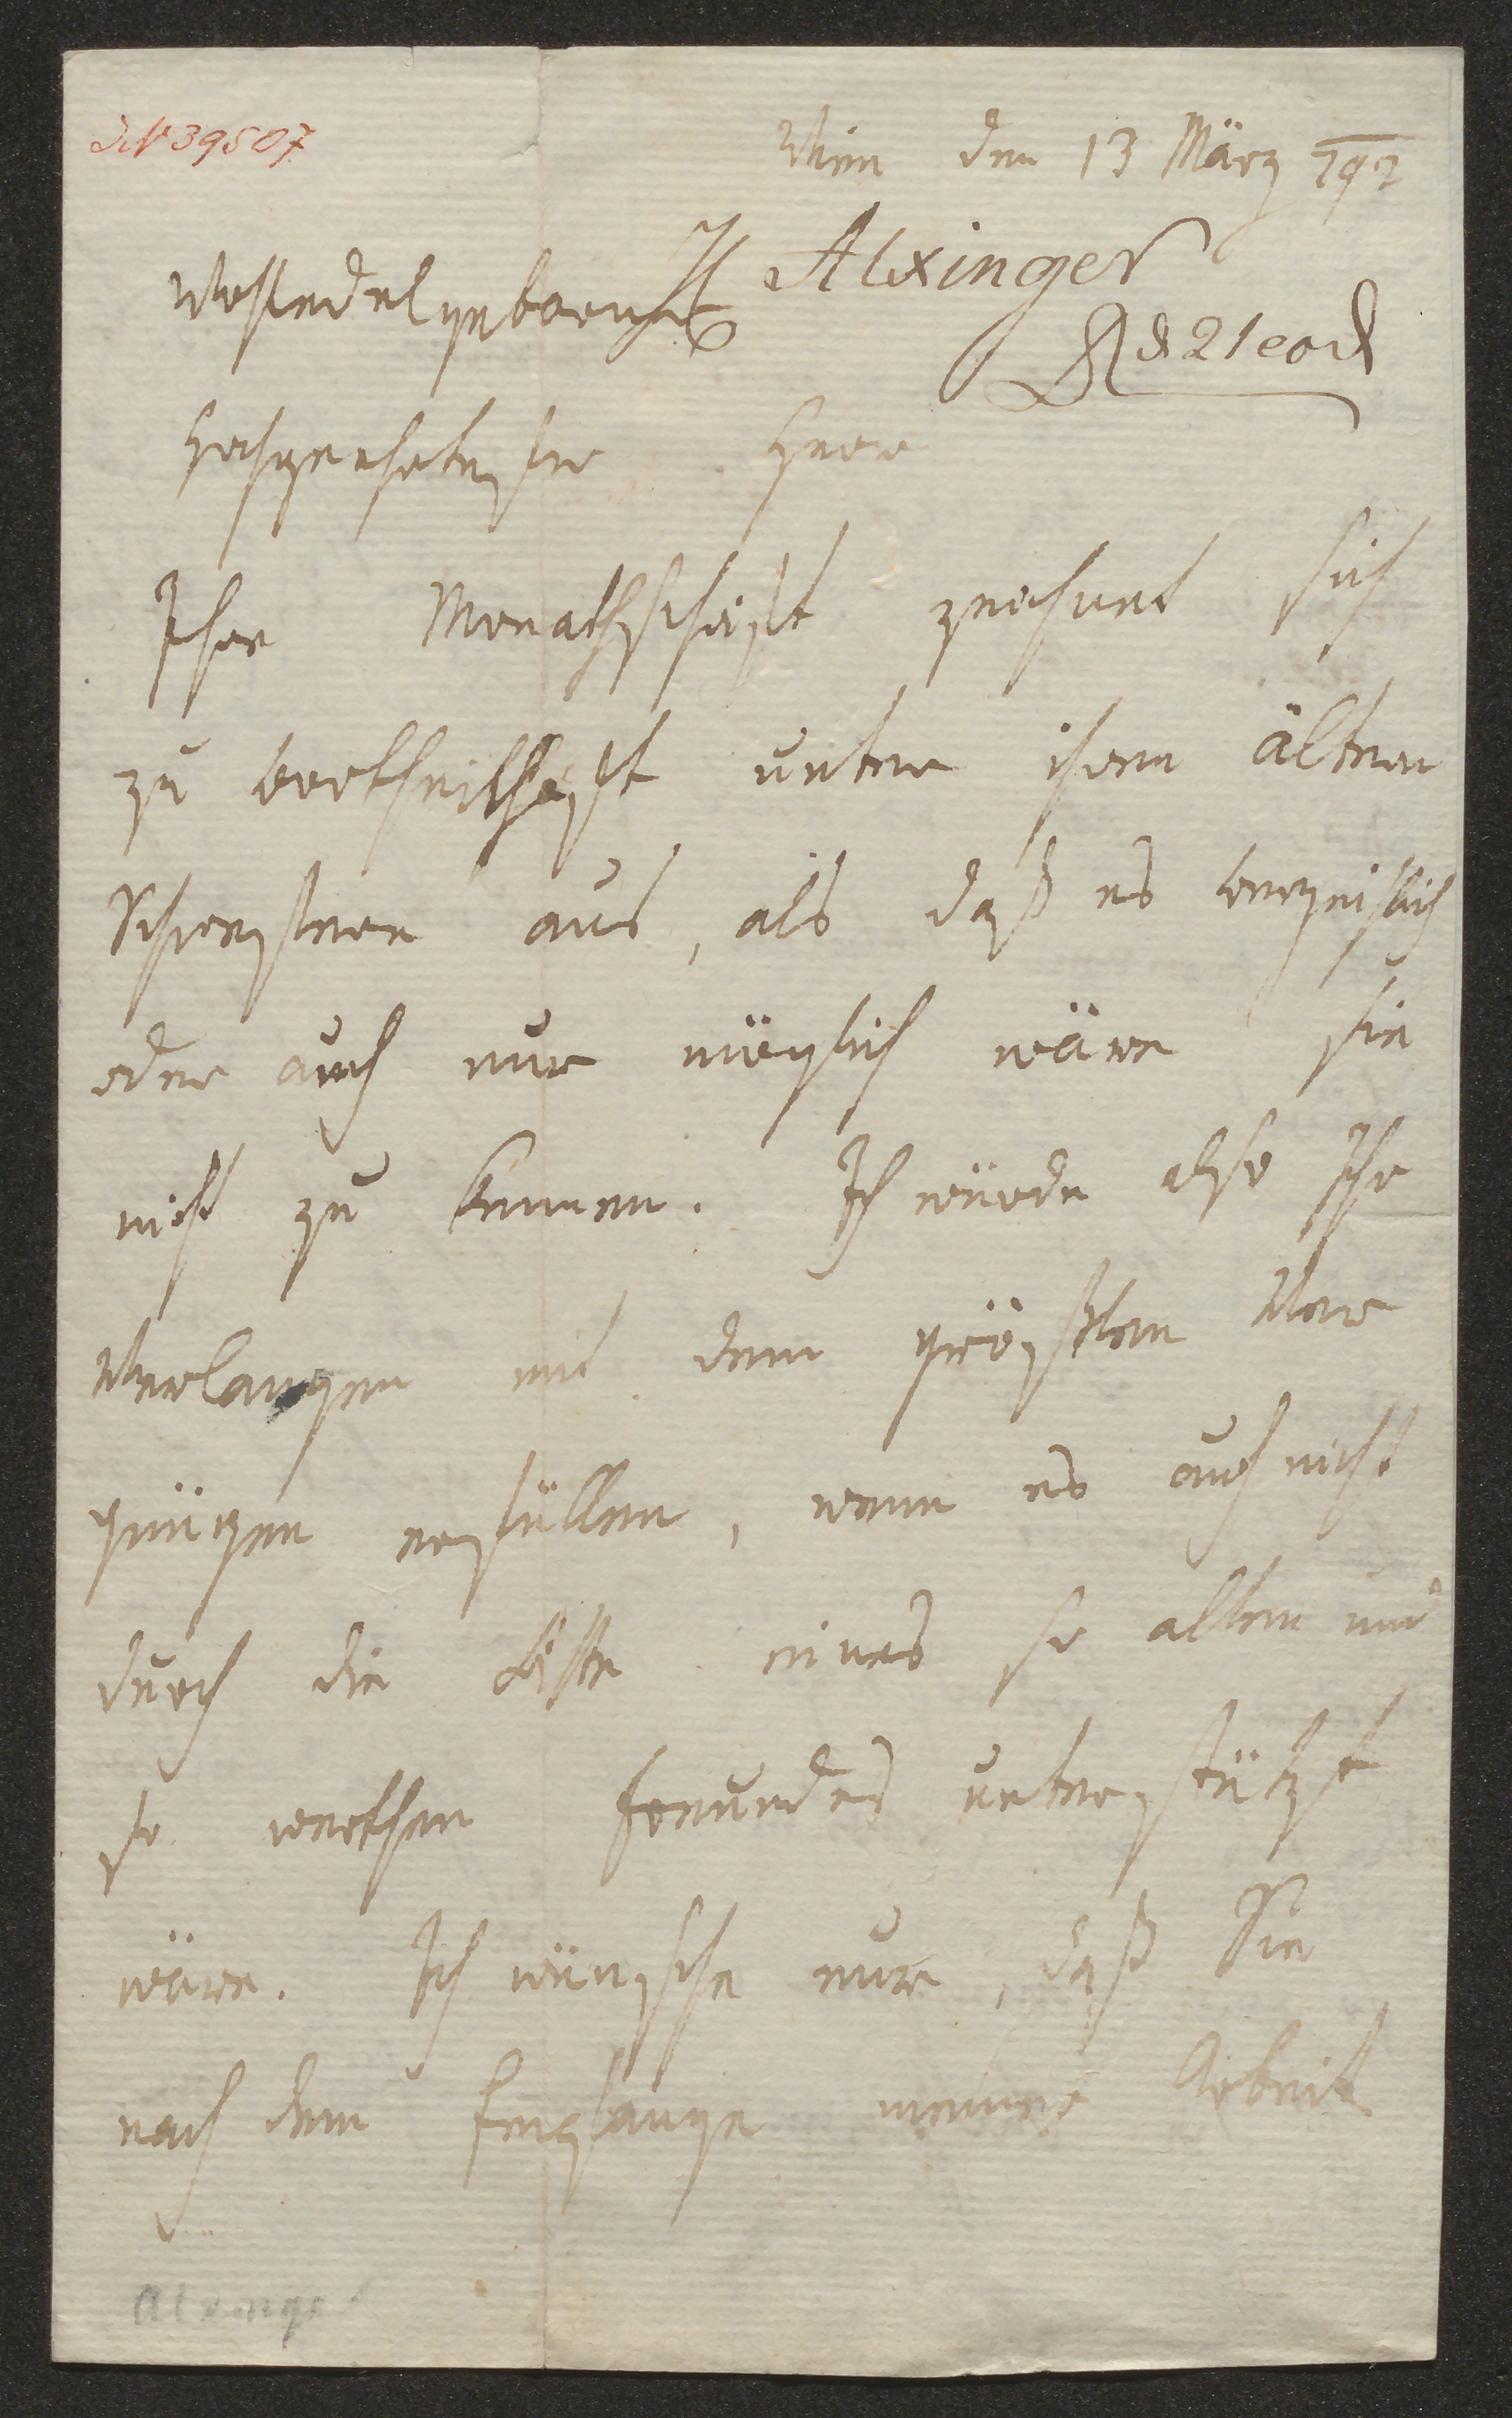 JN 39507
Wien den 13 März 792
Alxinger
Wohledelgeborner
d 21 eod
Hochgeehrtester Herr
Ihre Monathsschrift zeichnet sich
zu vortheilhaft unter ihren ältern
Schwestern aus, als daß es verzeihlich
oder auch nur möglich wäre sie
nicht zu kennen. Ich würde also Ihr
Verlangen mit dem größten Ver
gnügen erfüllen, wenn es auch nicht
durch die Bitte eines so alten und
so werthen Freundes unterstützt
wäre. Ich wünsche nur, daß Sie
nach dem Empfange meiner Arbeit
Alxinger